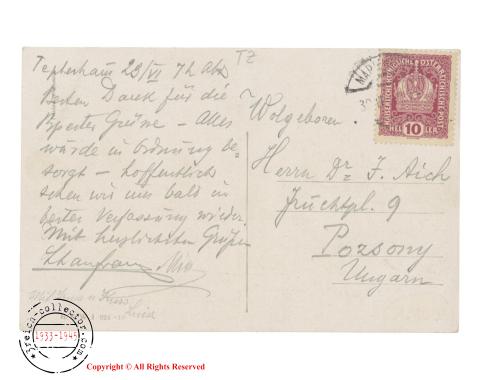 TZ
Tepterhaus 29/VI 7h Abds
Besten Dank für die
Grüsse – Alles
wurde in Ordnung be=
sorgt – hoffentlich
sehen wir uns bald in
bester Verfassung wieder
Mit herzlichsten Grüßen
Mia
KAISERLICHE KÖNIGLICHE ÖSTERREICHISCHE POST
10
HELLER
Wolgeboren
Herrn Dr. F. Aich
Fruchtpl. 9
Pozsony
Ungarn
3reich-collector.com
1933-1945
Copyright © All Rights Reserved